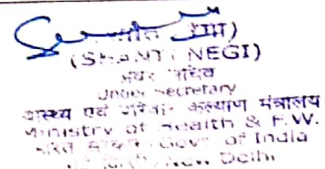 (SHANTI NEGI)
अवर सचिव
Under Secretary
स्वास्थ्य एवं परिवार कल्याण मंत्रालय
Ministry of Health & F.W.
भारत सरकार/Govt of India
New Delhi